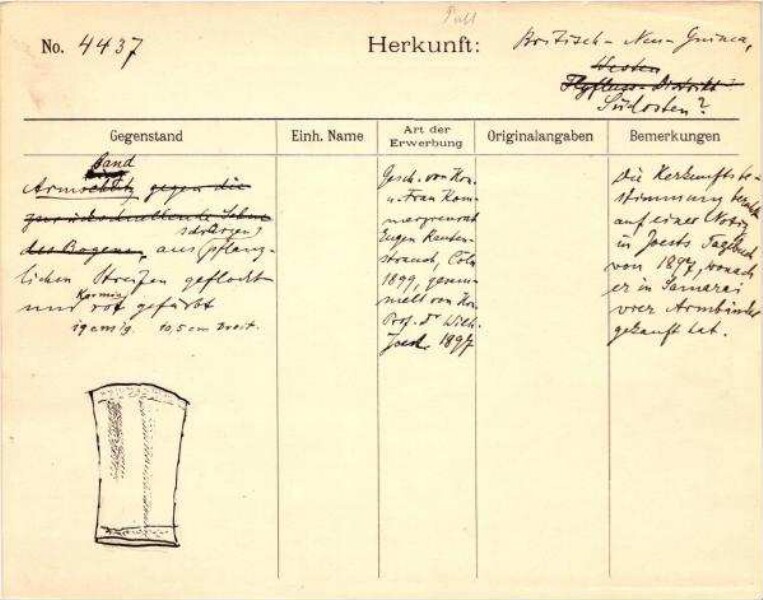 No. 4437
Herkunft:
Britisch-Neu-Guinea,
Westen
Flyfluss-Distrikt?
Südosten?
Gegenstand
Einh. Name
Art der
Erwerbung
Originalangaben
Bemerkungen
band
Armschutz gegen die
zurückschnellende Sehne
des Bogens, aus pflanz-
lichen Streifen geflocht
und Karmin rot gefärbt
10,5 cm breit.
Gesch. von Hrn.
u. Frau Kom-
merzienrat
Eugen Rauten-
strauch, Cöln
1899, gesam-
melt von Hrn.
Prof. Dr Wilh.
Joest. 1897
Die Herkunftsbe-
stimmung beruht
auf einer Notiz
in Joests Tagebuch
von 1897, wonach
er in Samarai
vier Armbänder
gekauft hat.